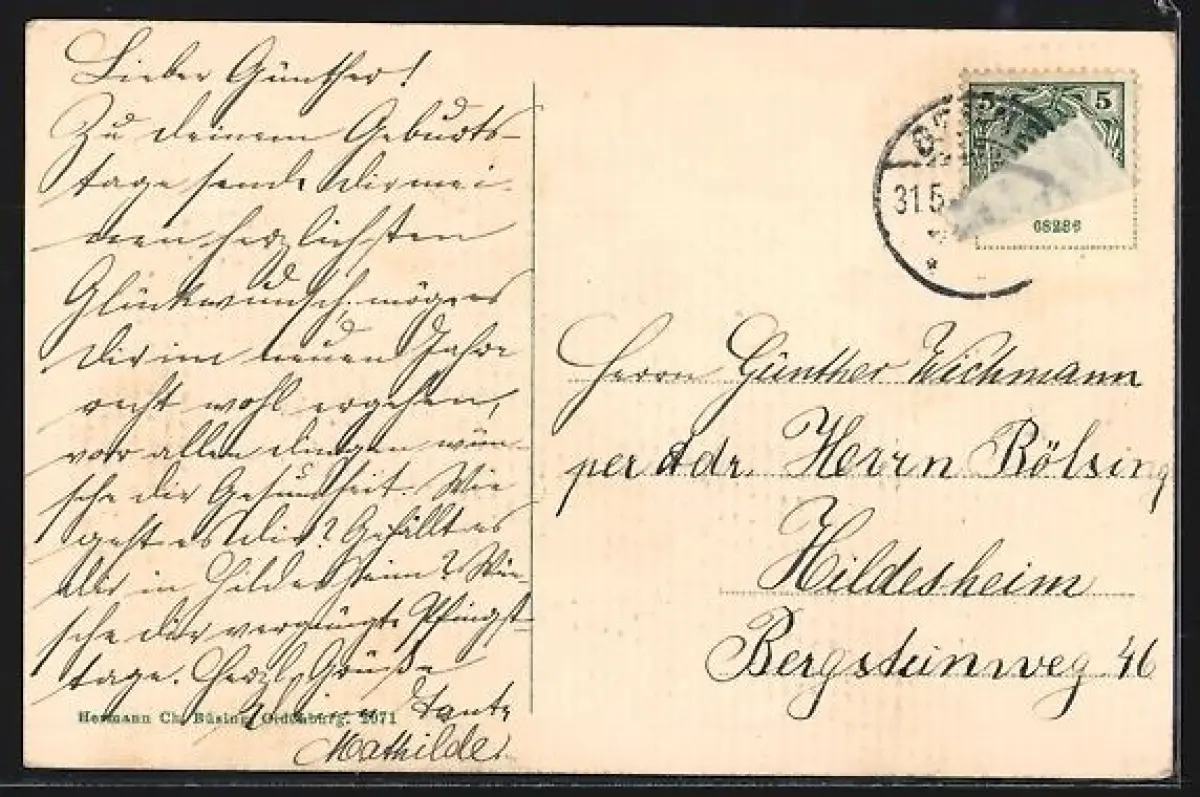 Lieber Günther!
Zu deinem Geburts-
tage sende dir mei-
nen herzlichsten
Glückwunsch, möge es
dir im neuen Jahre
recht wohl ergehen,
vor allen dingen wün-
sche dir Gesundheit. Wie
geht es dir? Gefällt es
in Hildesheim? Wün-
sche dir vergnügte Pfingst-
tage. Herzl. Grüße
Tante
Mathilde.
Hermann Ch. Büsing, Oldenburg. 2071
5 5
31.5
68286
Herrn Günther Wichmann
per Adr. Herrn Rölsing
Hildesheim
Bergsteinweg 46